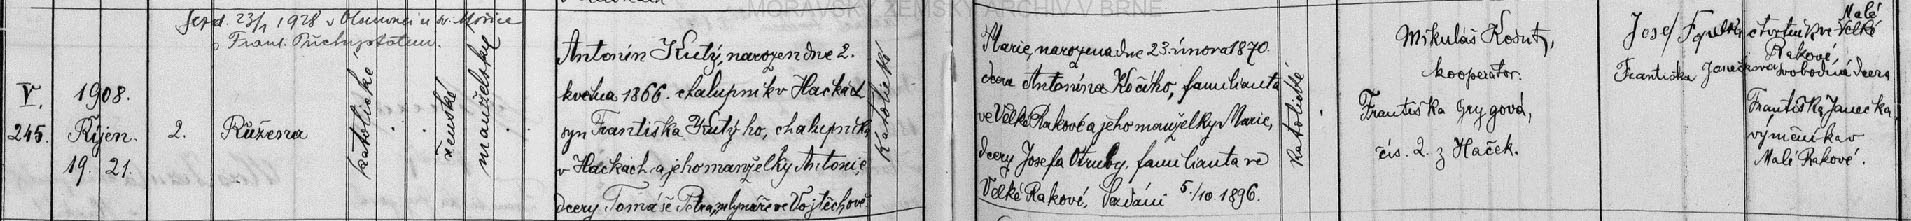 MORAVSKÝ ZEMSKÝ ARCHIV V BRNĚ
23/1 1928 v Olomouci u sv. Mořice
s Frant. Přichystalem.
V.
245.
1908.
Říjen.
19. 21.
2.
Růžena
katolické
ženské
manželské
Antonín Kutý, narozen dne 2.
května 1866. chalupník v Hačkách
syn Františka Kutýho, chalupníka
v Hačkách a jeho manželky Antonie,
dcery Tomáše mlynáře ve Vojtěchově
katolické
Marie, narozena dne 23. února 1870.
dcera Antonína Kočího, familianta
ve Velké Rakové a jeho manželky Marie,
dcery Josefa Otruby, familianta ve
Velké Rakové. Oddáni 5./10 1896.
katolické
Mikuláš Kosut,
kooperator.
Františka Grygová,
čís. 2. z Haček.
Josef čtvrtník ve Velké
Malé
Rakové,
Františka Janečkova svobodná dcera
Františka Janečka,
výměnkáře v
Malé Rakové.